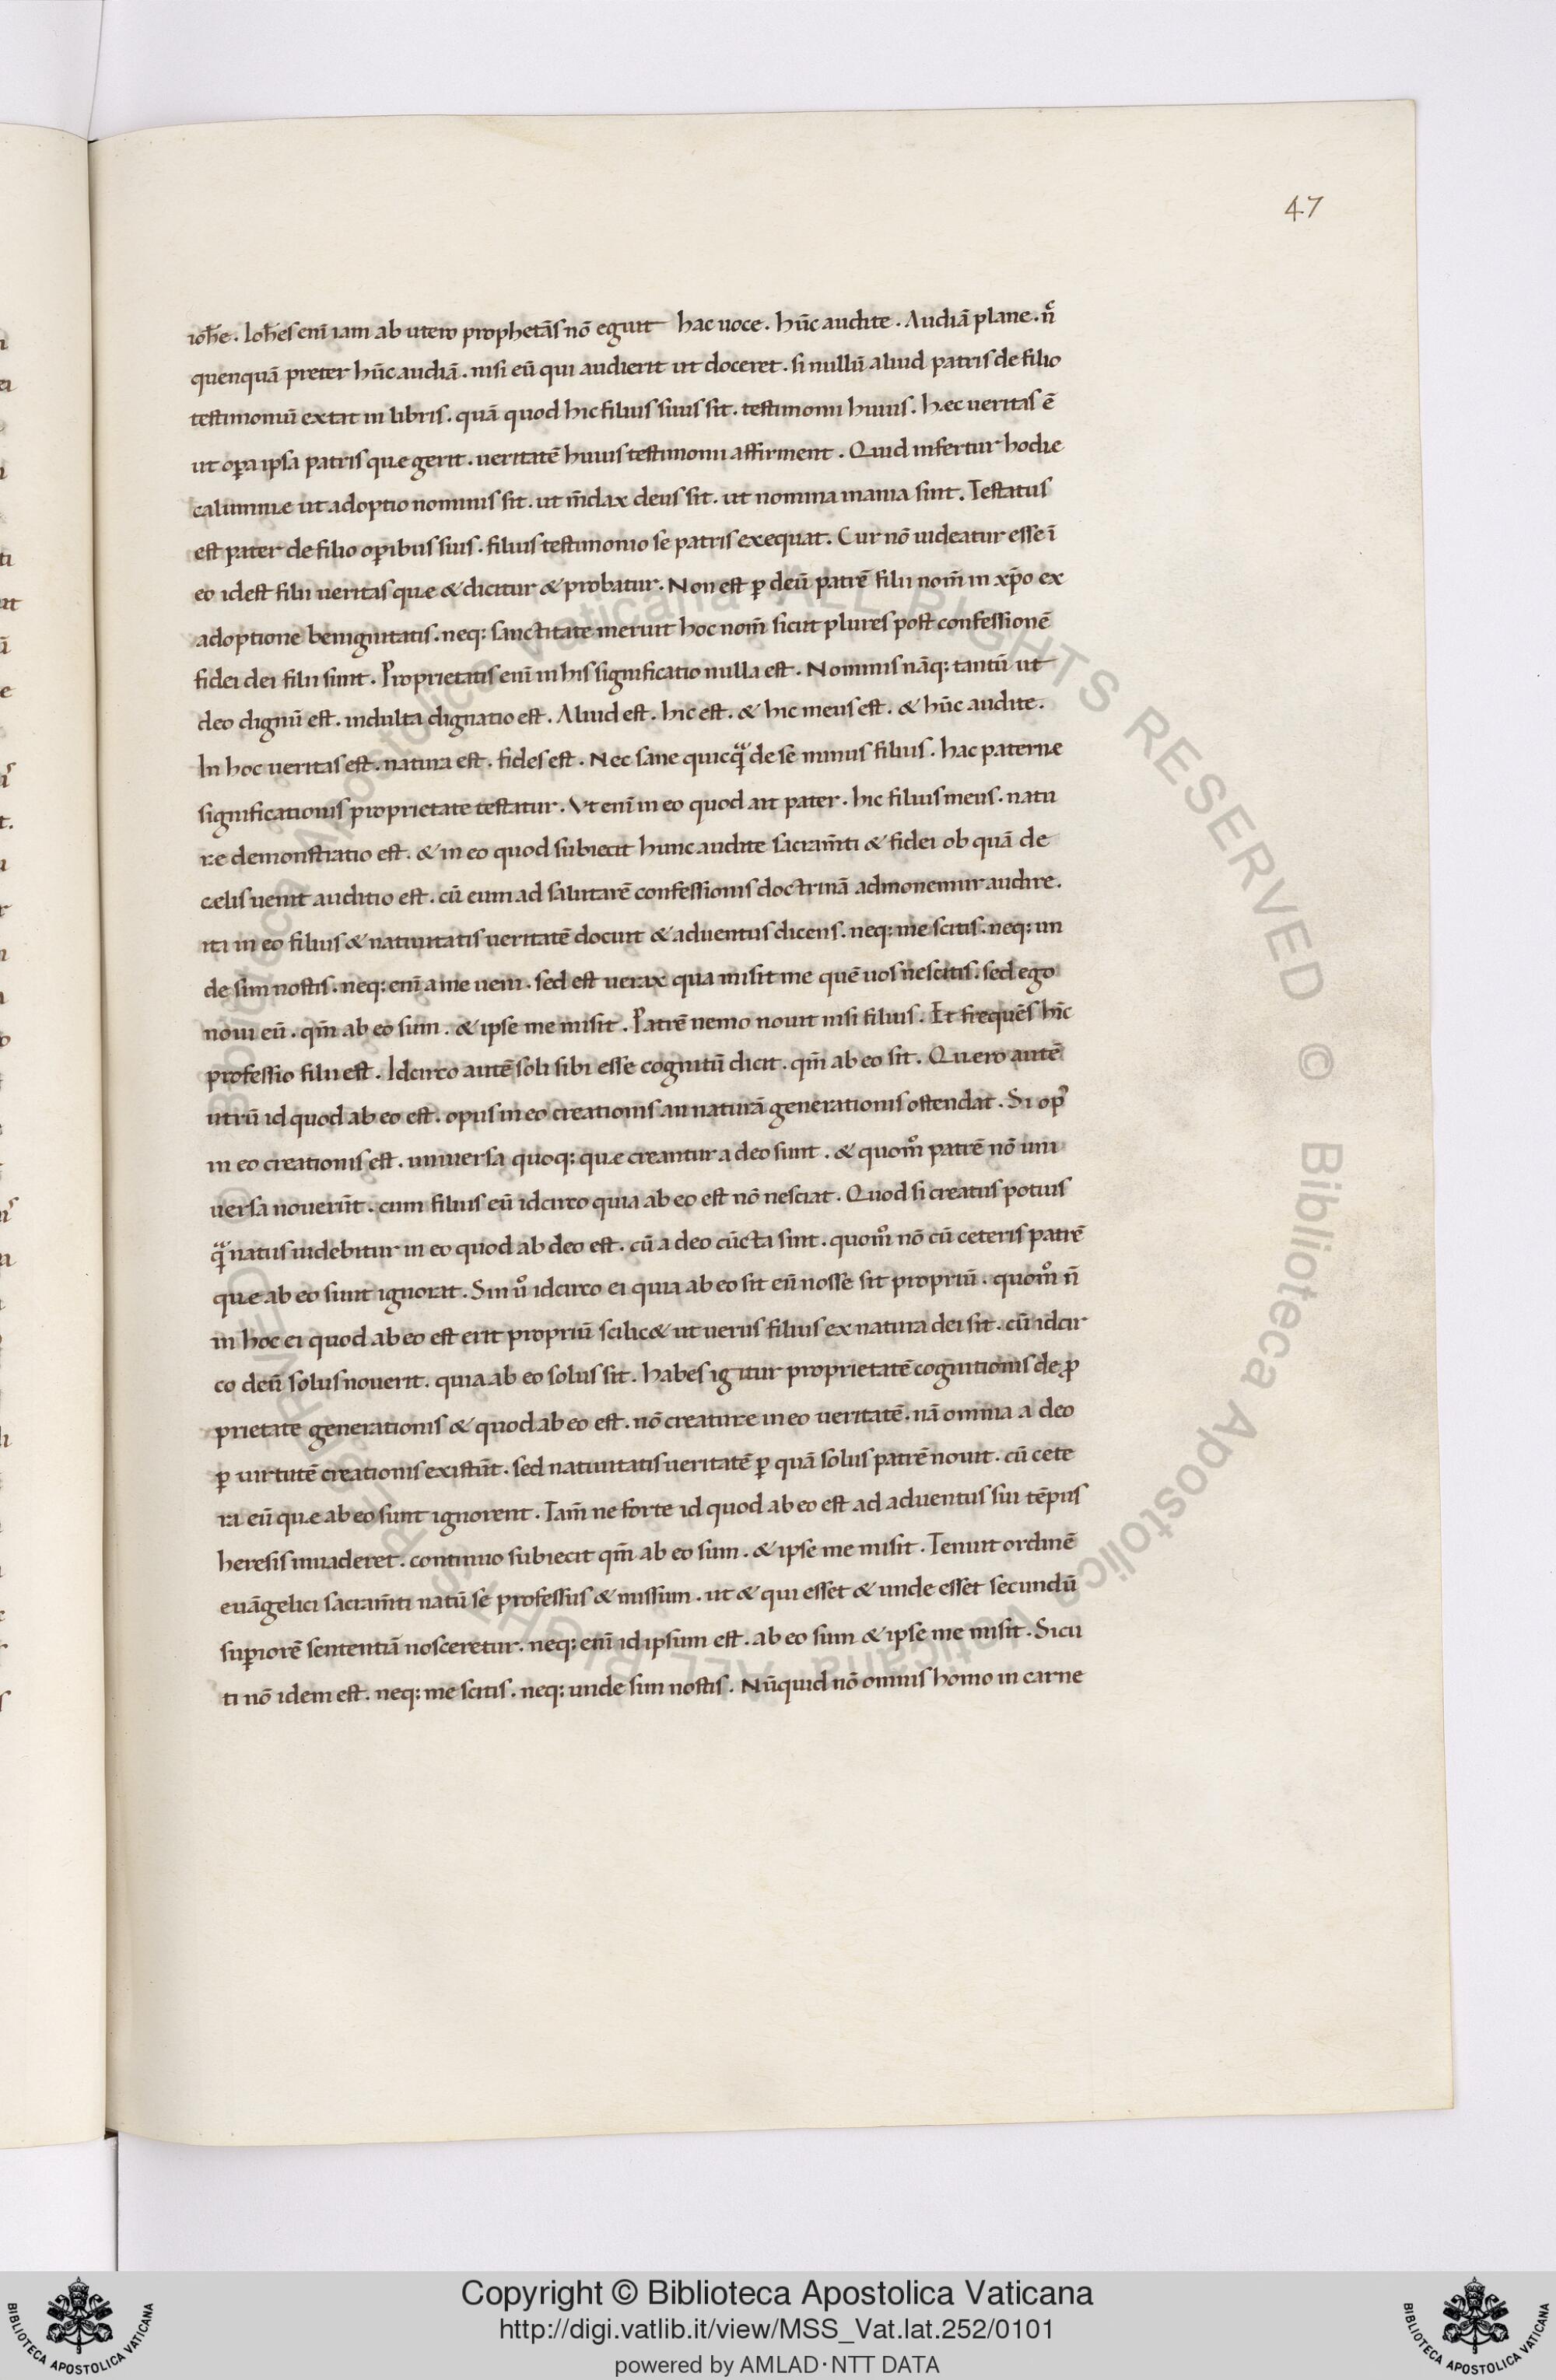 47
ioh̄e. Ioh̄es enī iam ab utero prophetās nō eguit hac uoce. hūc audite. Audiā plane. n̄c
quenquā preter hūc audiā. nisi eū qui audierit ut doceret. si nullū aliud patris de filio
testimoniū extat in libris. quā quod hic filius suus sit. testimonii huius. hęc ueritas ē
ut oꝑa ipsa patris quę gerit. ueritatē huius testimonii affirment. Quid infertur hodie
calumnię ut adoptio nominis sit. ut m̄dax deus sit. ut nomina inania sint. Testatus
est pater de filio oꝑibus suis. filius testimonio se patris exequat. Cur nō uideatur esse ī
eo idest filii ueritas quę & dicitur & probatur. Non est ꝑ deū patrē filii nom̄ in xp̄o ex
adoptione benignitatis. neq: sanctitate meruit hoc nom̄ sicut plures post confessionē
fidei dei filii sunt. Proprietatis enī in his significatio nulla est. Nominis nāq: tantū ut
deo dignū est. indulta dignatio est. Aliud est. hic est. & hic meus est. & hūc audite.
In hoc ueritas est. natura est. fides est. Nec sane quicqᵃ̄ de se minus filius. hac paternę
significationis proprietate testatur. Vt enī in eo quod ait pater. hic filius meus. natu
rę demonstratio est. & in eo quod subiecit hunc audite sacram̄ti & fidei ob quā de
cęlis uenit auditio est. cū eum ad salutarē confessionis doctrinā admonemur audire.
ita in eo filius & natiuitatis ueritatē docuit & aduentus dicens. neq: me scitis. neq: un
de sim nostis. neq: enī a me ueni. sed est uerax qua misit me quē uos nescitis. sed ego
noui eū. qm̄ ab eo sum. & ipse me misit. Patrē nemo nouit nisi filius. Et frequēs hīc
professio filii est. Idcirco autē soli sibi esse cognitū dicit. qm̄ ab eo sit. Quęro autē
utrū id quod ab eo est. opus in eo creationis an naturā generationis ostendat. Si opꝰ
in eo creationis est. uniuersa quoq: quę creantur a deo sunt. & quom̊ patrē nō uni
uersa nouerūt. cum filius eū idcirco quia ab eo est nō nesciat. Quod si creatus potius
qᵃ̄ natus uidebitur in eo quod ab deo est. cū a deo cūcta sint. quom̊ nō cū ceteris patrē
quę ab eo sunt ignorat. Sin ů idcirco ei quia ab eo sit eū nosse sit propriū. quom̊ n̄
in hoc ei quod ab eo est erit propriū scilic& ut uerus filius ex natura dei sit. cū idcir
co deū solus nouerit. quia ab eo solus sit. habes igitur proprietatē cognitionis de ꝓ
prietate generationis & quod ab eo est. nō creaturę in eo ueritatē. nā omnia a deo
ꝑ uirtutē creationis existūt. sed natiuitatis ueritatē ꝑ quā solus patrē nouit. cū cete
ra eū quę ab eo sunt ignorent. Tam̄ ne forte id quod ab eo est ad aduentus sui tēpus
heresis inuaderet. continuo subiecit qm̄ ab eo sum. & ipse me misit. Tenuit ordinē
euāgelici sacram̄ti natū se professus & missum. ut & qui esset & unde esset secundū
suꝑiorē sententiā nosceretur. neq: enī id ipsum est. ab eo sum & ipse me misit. Sicu
ti nō idem est. neq: me scitis. neq: unde sim nostis. Nūquid nō omnis homo in carne
Copyright © Biblioteca Apostolica Vaticana
http://digi.vatlib.it/view/MSS_Vat.lat.252/0101
powered by AMLAD·NTT DATA